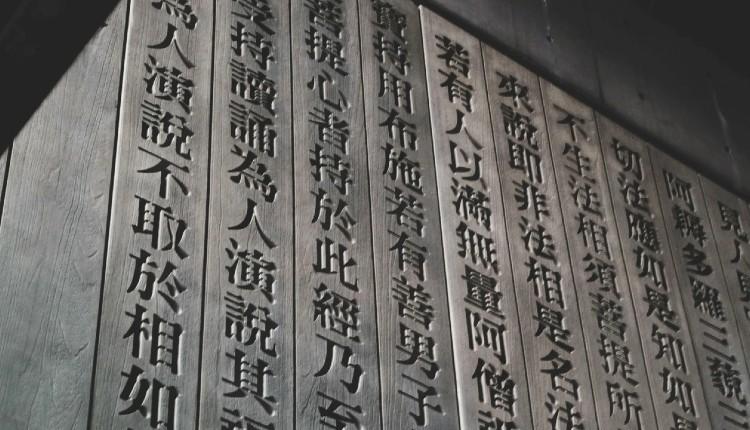 見人見
阿耨多羅三藐三
切法應如是知如
不生法相須菩提所
來說即非法相是名法
若有人以滿無量阿僧
寶持用布施若有善男子
菩提心者持於此經乃至
受持讀誦為人演說其
為人演說不取於相如